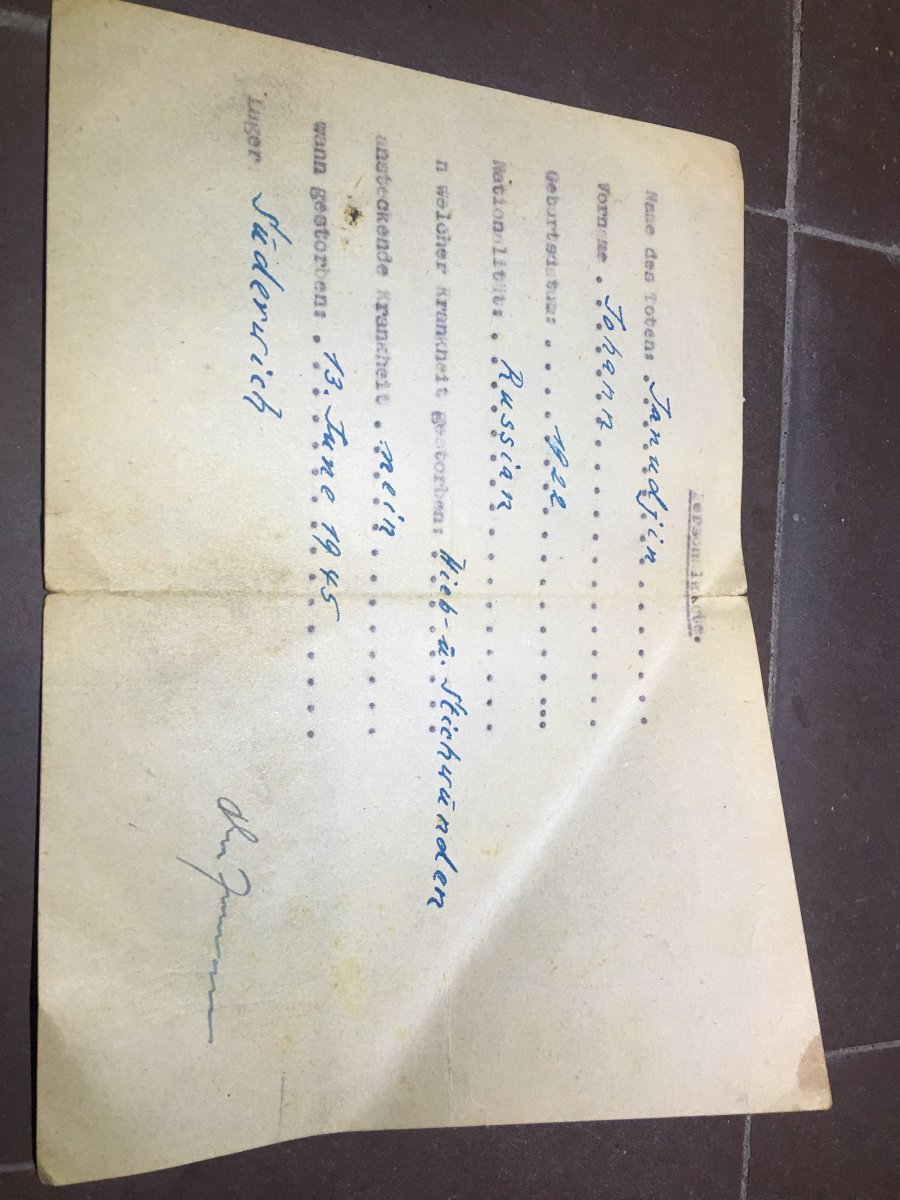 Personalakte.
Name des Toten: Janudjin
Vorname . Johann
Geburtsdatum: 1922
Nationalität: Russian
n welcher Krankheit gestorben: Hieb- u. Stichwunden
ansteckende Krankheit . nein
wann gestorben: 13. June 1945
Lager: Süderwich